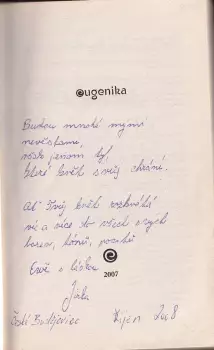 eugenika
Budou mnohé mými
nevěstami,
však jenom ty,
které květ svůj chrání.
Ať Tvůj květ rozkvétá
víc a více do všech svých
barev, tónů,
S
2007
Jirka
České Budějovice
říjen 2008